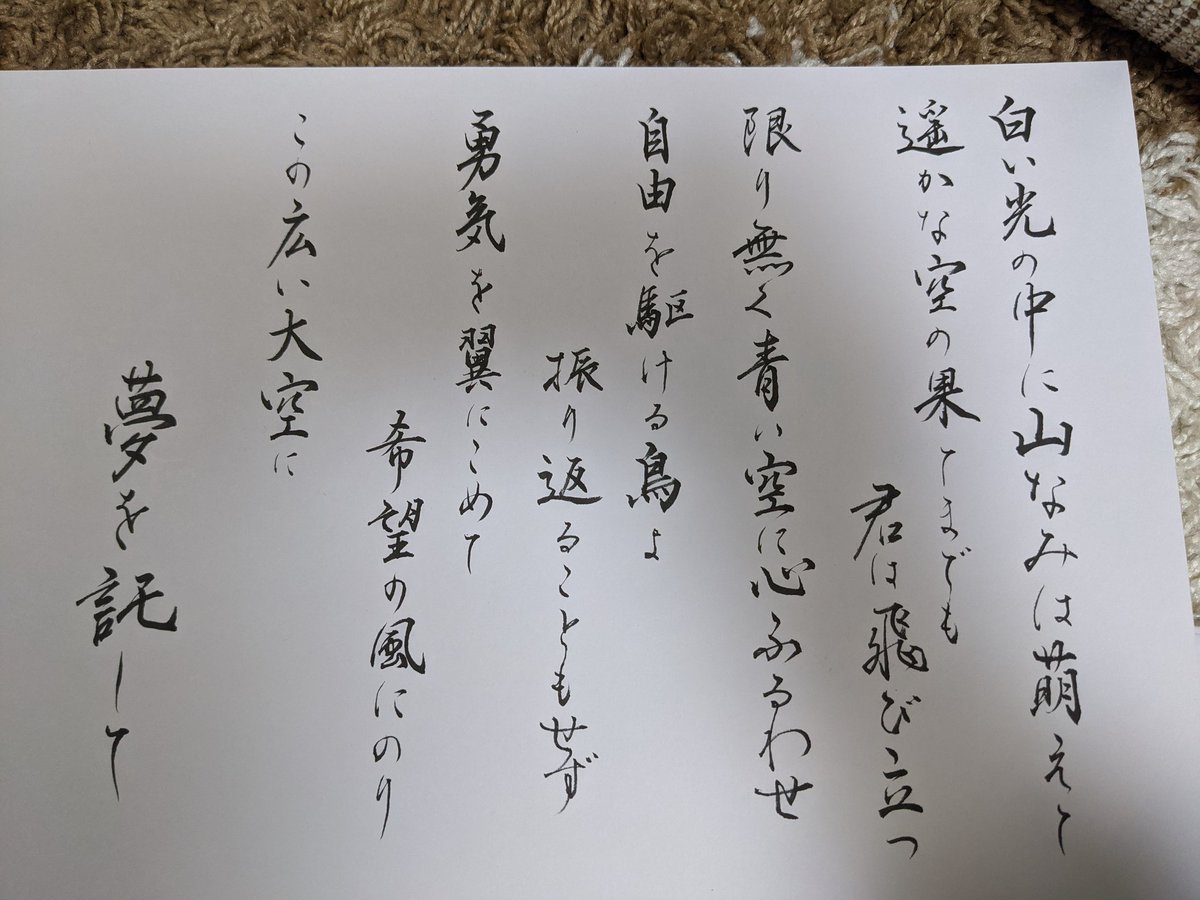 白い光の中に山なみは萌えて
遥かな空の果てまでも
君は飛び立つ
限り無く青い空に心ふるわせ
自由を駆ける鳥よ
振り返ることもせず
勇気を翼にこめて
希望の風にのり
この広い大空に
夢を託して